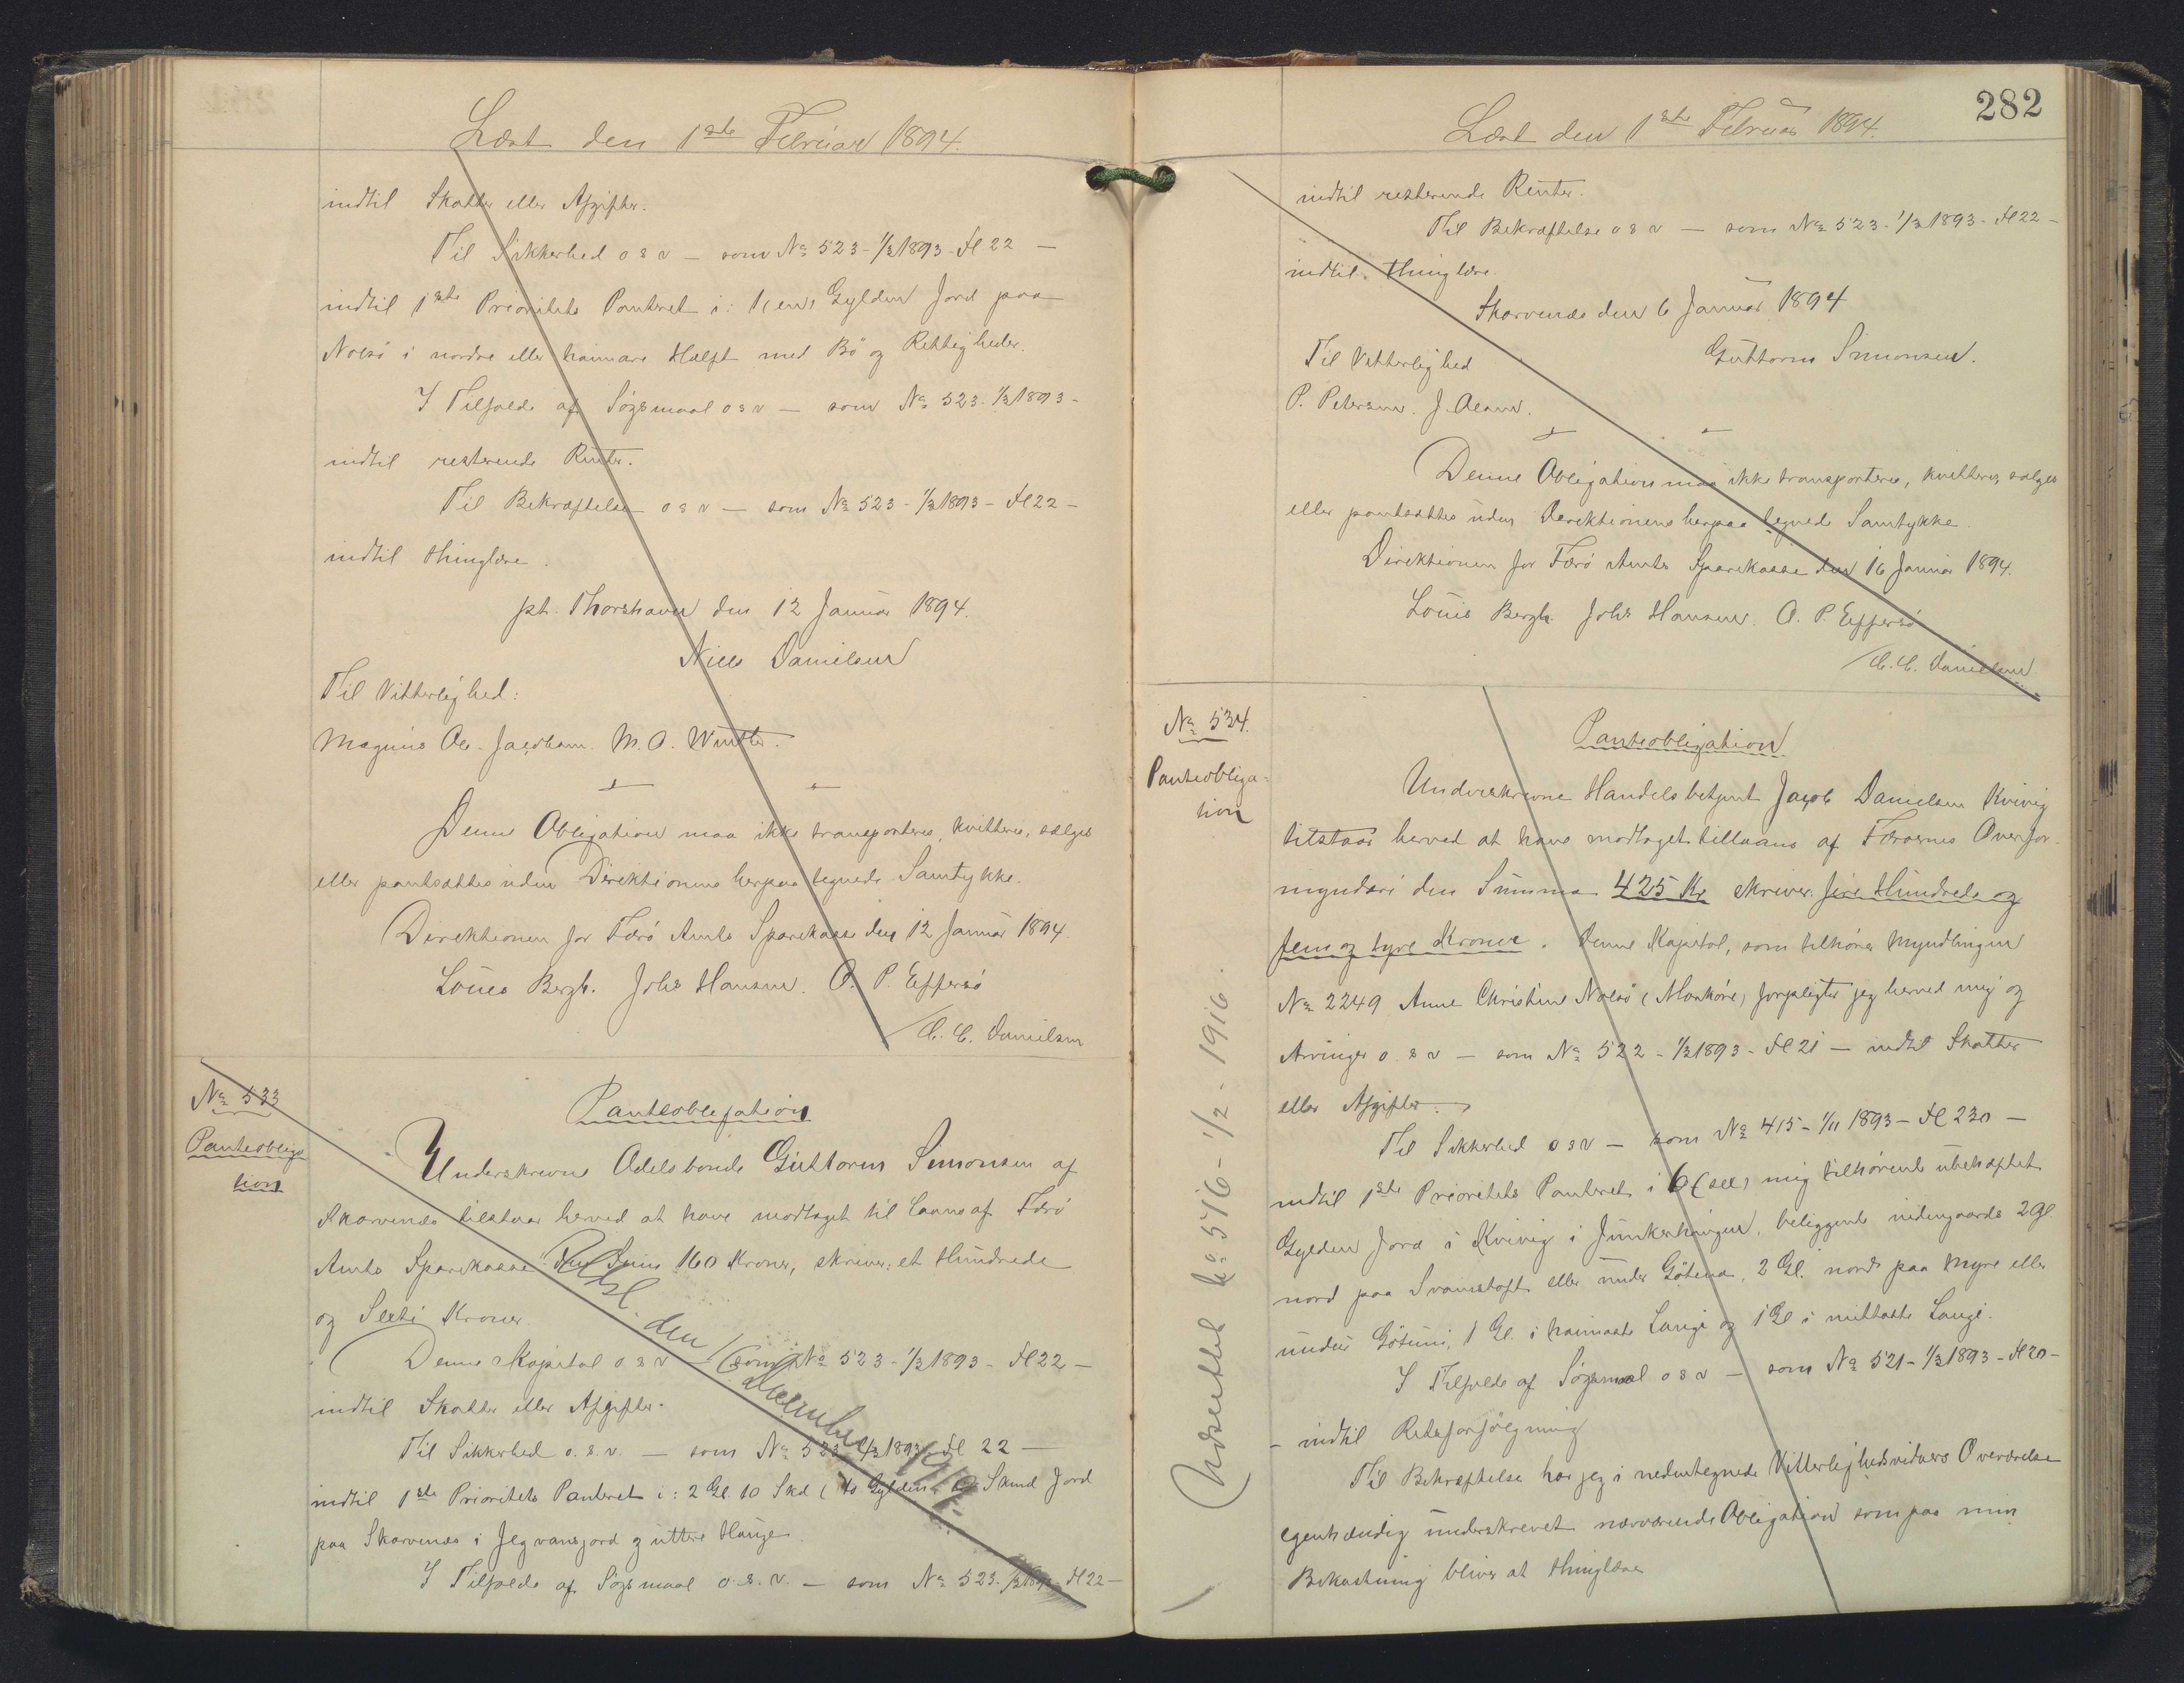 Læst den 1ste Februar 1894.
indtil Skatter eller Afgifter.
Til Sikkerhed o s v — som No 523 - 1/3 1893 - Fl 22 —
indtil 1ste Prioritets Panteret i: 1 (en) Gylden Jord paa
Nolsö i nordre eller haimare Halft med Bö og Rettigheder.
I Tilfælde af Søgsmaal o s v — som No 523 - 1/3 1893 -
indtil resterende Renter.
Til Bekræftelse o s v — som No 523 - 1/3 1893 - Fl 22 -
indtil thinglæse.
pt. Thorshavn den 12 Januar 1894.
Niels Danielsen
Til Vitterlighed:
Magnus Ol. Jacobsen. M. A. Winther.
Denne Obligation maa ikke transporteres, kvitteres, sælges
eller pantsættes uden Direktionens herpaa tegnede Samtykke.
Direktionen for Færö Amts Sparekasse den 12 Januar 1894.
Louis Bergh. Johs Hansen. O. P. Effersö
/C. C. Danielsen
No 533
Panteobliga
tion
Panteobligation
Underskrevne Odelsbonde Guttorm Simonsen af
Skarvenæs tilstaar herved at have modtaget til Laans af Færö
Amts Sparekasse den Sum 160 Kroner, skriver: et Hundrede
og Sexti Kroner.
Denne Kapital o s v — som No 523 - 1/3 1893 - Fl 22 —
indtil Skatter eller Afgifter.
Til Sikkerhed o. s. v. — som No 523 - 1/3 1893 - Fl 22 —
indtil 1ste Prioritets Panteret i: 2 Gl. 10 Skd ( to Gylden 10 Skind Jord
paa Skarvenæs i Jegvansjord og uttere Hauge.
I Tilfælde af Søgsmaal o. s. v. — som No 523 - 1/3 1893 - Fl 22 —
Udsl. den 16 December 1919.
282
Læst den 1ste Februar 1894.
indtil resterende Renter.
Til Bekræftelse o s v — som No 523 - 1/3 1893 - Fl 22 -
indtil thinglæse.
Skarvenæs den 6 Januar 1894
Guttorm Simonsen.
Til Vitterlighed
P. Petersen. J. Olsen.
Denne Obligation maa ikke transporteres, kvitteres, sælges
eller pantsættes uden Direktionens herpaa tegnede Samtykke.
Direktionen for Færö Amts Sparekasse den 16 Januar 1894.
Louis Bergh. Johs Hansen. O. P. Effersö
/C. C. Danielsen
No 534.
Panteobliga=
tion
Panteobligation
Underskrevne Handelsbetjent Jacob Danielsen Kvivig
tilstaar herved at have modtaget tillaans af Færøernes Overfor-
mynderi den Summa 425 Kr. skriver: fire Hundrede og
fem og tyve Kroner. Denne Kapital, som tilhører Myndlingen
No 2249 Anne Christine Nolsö (Morköre) forpligter jeg herved mig og
Arvinger o. s v — som No 522 - 1/3 1893 - Fl 21 — indtil Skatter
eller Afgifter.
Til Sikkerhed o s v — som No 415 - 1/11 1893 - Fl 230 —
indtil 1ste Prioritets Panteret i 6 (sex) mig tilhørende ubehæftet
Gylden Jord i Kvivig i Junkerhaugen, beliggende nidengaards 2 Gl
nord paa Svanstoft eller under Götuna, 2 Gl. nord paa Myre eller
undir Götuni, 1 Gl. i haimaste Laugi og 1 Gl i mittaste Laugi.
I Tilfælde af Søgsmaal o s v — som No 521 - 1/3 1893 - Fl 20 -
- indtil Retsforfölgning
Til Bekræftelse har jeg i nedentegnede Vitterlighedsvidners Overværelse
egenhændig underskrevet nærværende Obligation som paa min
Bekostning bliver at thinglæse
Udslettet No 516 - 1/2 - 1916.